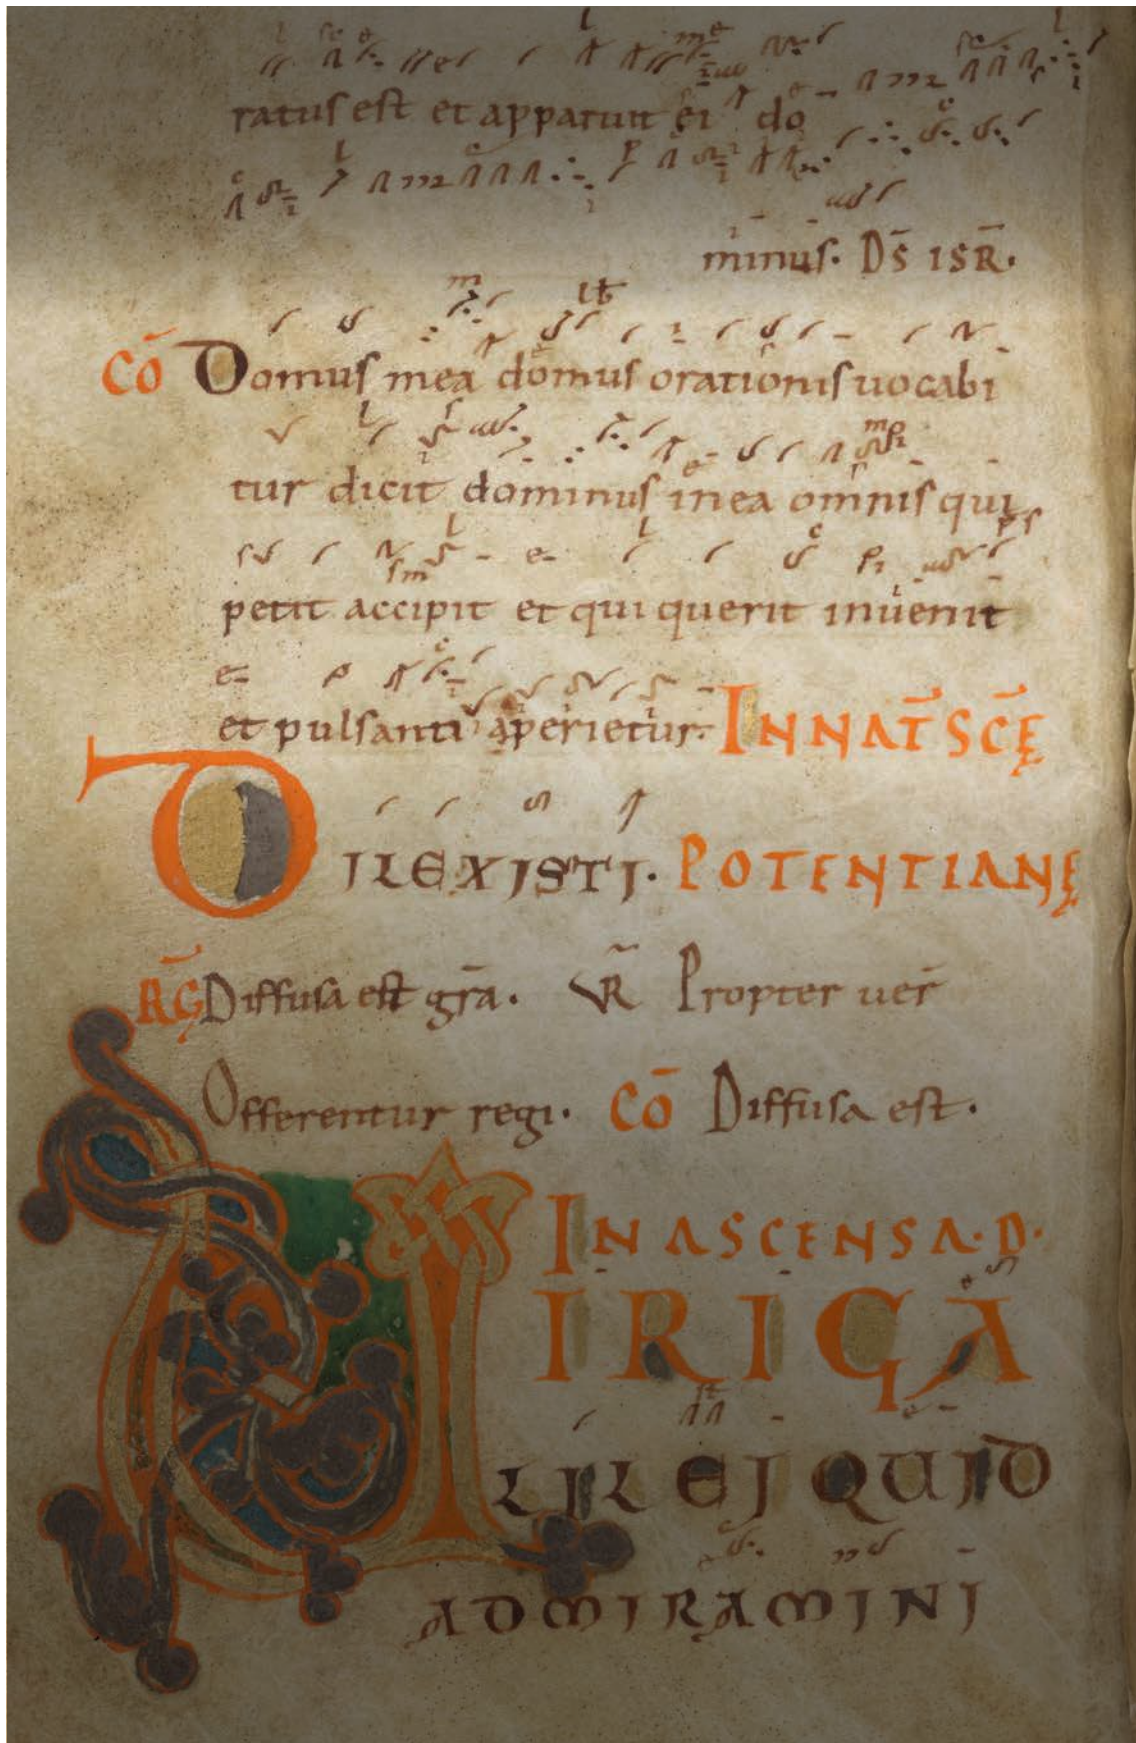 ratus est et apparuit ei do
minus. DS̄ ISR̄.
CŌ Domus mea domus orationis uocabi
tur dicit dominus in ea omnis qui
petit accipit et qui querit inuenit
et pulsanti aperietur. IN NAT̄ SC̄Ę
DILEXISTI. POTENTIANĘ
R̄G Diffusa est gr̄a. VR̃ Propter uer̄
Offerentur regi. CŌ Diffusa est.
IN ASCENSA. D.
UIRI GA
LILEI QUID
ADMIRAMINI